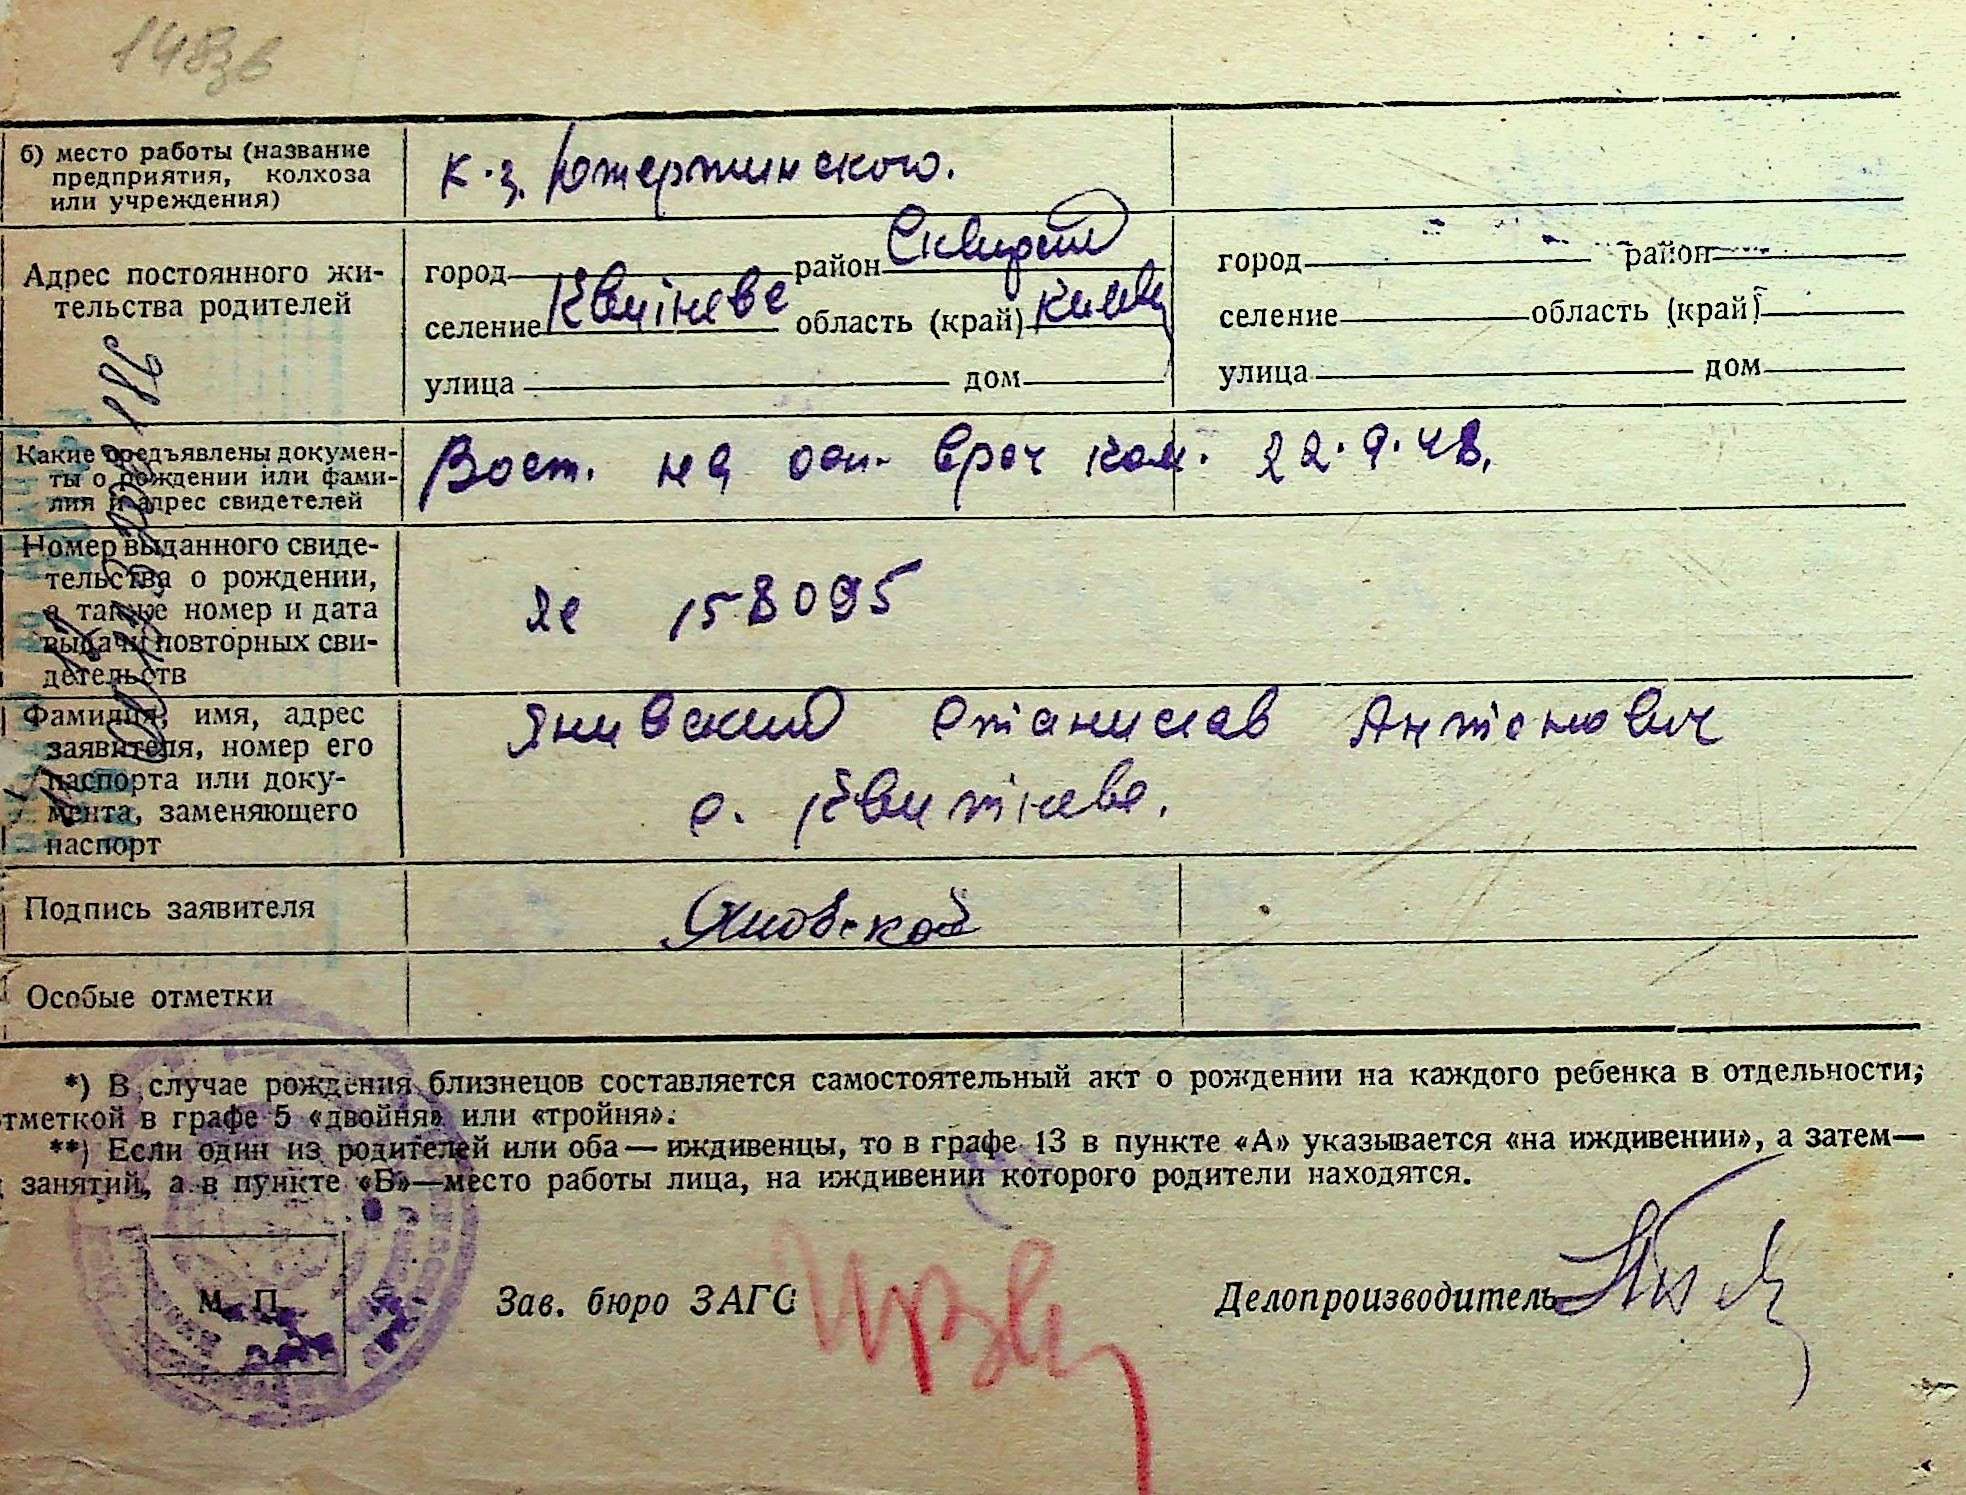 148зв
б) место работы (название предприятия, колхоза или учреждения)
к-з. Южержинского.
Адрес постоянного жительства родителей
город район Сквирский
селение область (край) Киев
улица дом
город район
селение область (край)
улица дом
Какие предъявлены документы о рождении или фамилия и адрес свидетелей
Вост. на осн. врач ком. 22.9.48.
Номер выданного свидетельства о рождении, а также номер и дата выдачи повторных свидетельств
158095
Фамилия, имя, адрес заявителя, номер его паспорта или документа, заменяющего паспорт
Янивский Станислав Антонович
с.
Подпись заявителя
Яновской
Особые отметки
*) В случае рождения близнецов составляется самостоятельный акт о рождении на каждого ребенка в отдельности,
отметкой в графе 5 «двойня» или «тройня».
**) Если один из родителей или оба — иждивенцы, то в графе 13 в пункте «А» указывается «на иждивении», а затем—
занятий, а в пункте «Б»—место работы лица, на иждивении которого родители находятся.
М. П.
Зав. бюро ЗАГС
Делопроизводитель